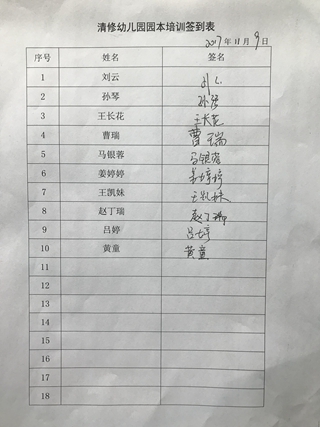 清修幼儿园园本培训签到表
2017年11月9日
序号 姓名 签名
1 刘云 刘云
2 孙琴 孙琴
3 王长花 王长花
4 曹瑞 曹瑞
5 马银蓉 马银蓉
6 姜婷婷 姜婷婷
7 王凯妹 王凯妹
8 赵丁瑞 赵丁瑞
9 吕婷 吕婷
10 黄童 黄童
11
12
13
14
15
16
17
18